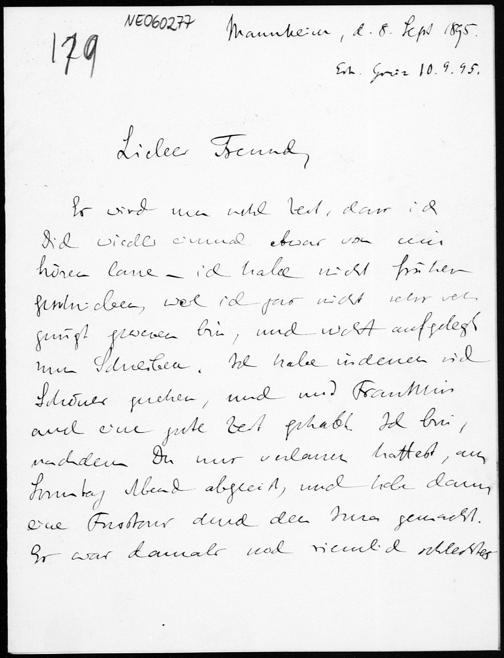 NEO60277
179
Mannheim, d. 8. Sept 1895.
Erh. Graz 10.9.95.
Lieber Freund,
Es wird nun wohl Zeit, dass ich
Dich wieder einmal etwas von mir
hören lasse – ich habe nicht früher
geschrieben, weil ich gar nicht sehr ver-
gnügt gewesen bin, und nicht aufgelegt
zum Schreiben. Ich habe indessen viel
Schönes gesehen, und mit Franklins
auch eine gute Zeit gehabt. Ich bin,
nachdem Du mich verlassen hattest, am
Sonntag Abend abgereist, und habe dann
eine Fusstour durch den Jura gemacht.
Es war damals noch ziemlich schlechtes